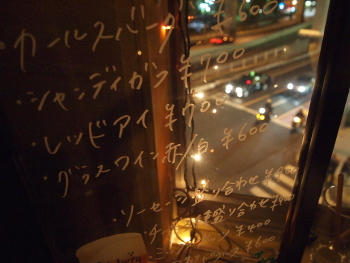 ・カールスバーグ ¥600
・シャンディガフ ¥700
・レッドアイ ¥700
・グラスワイン赤/白 ¥600
ソーセージ盛り合わせ
チーズ盛り合わせ
¥400
¥600